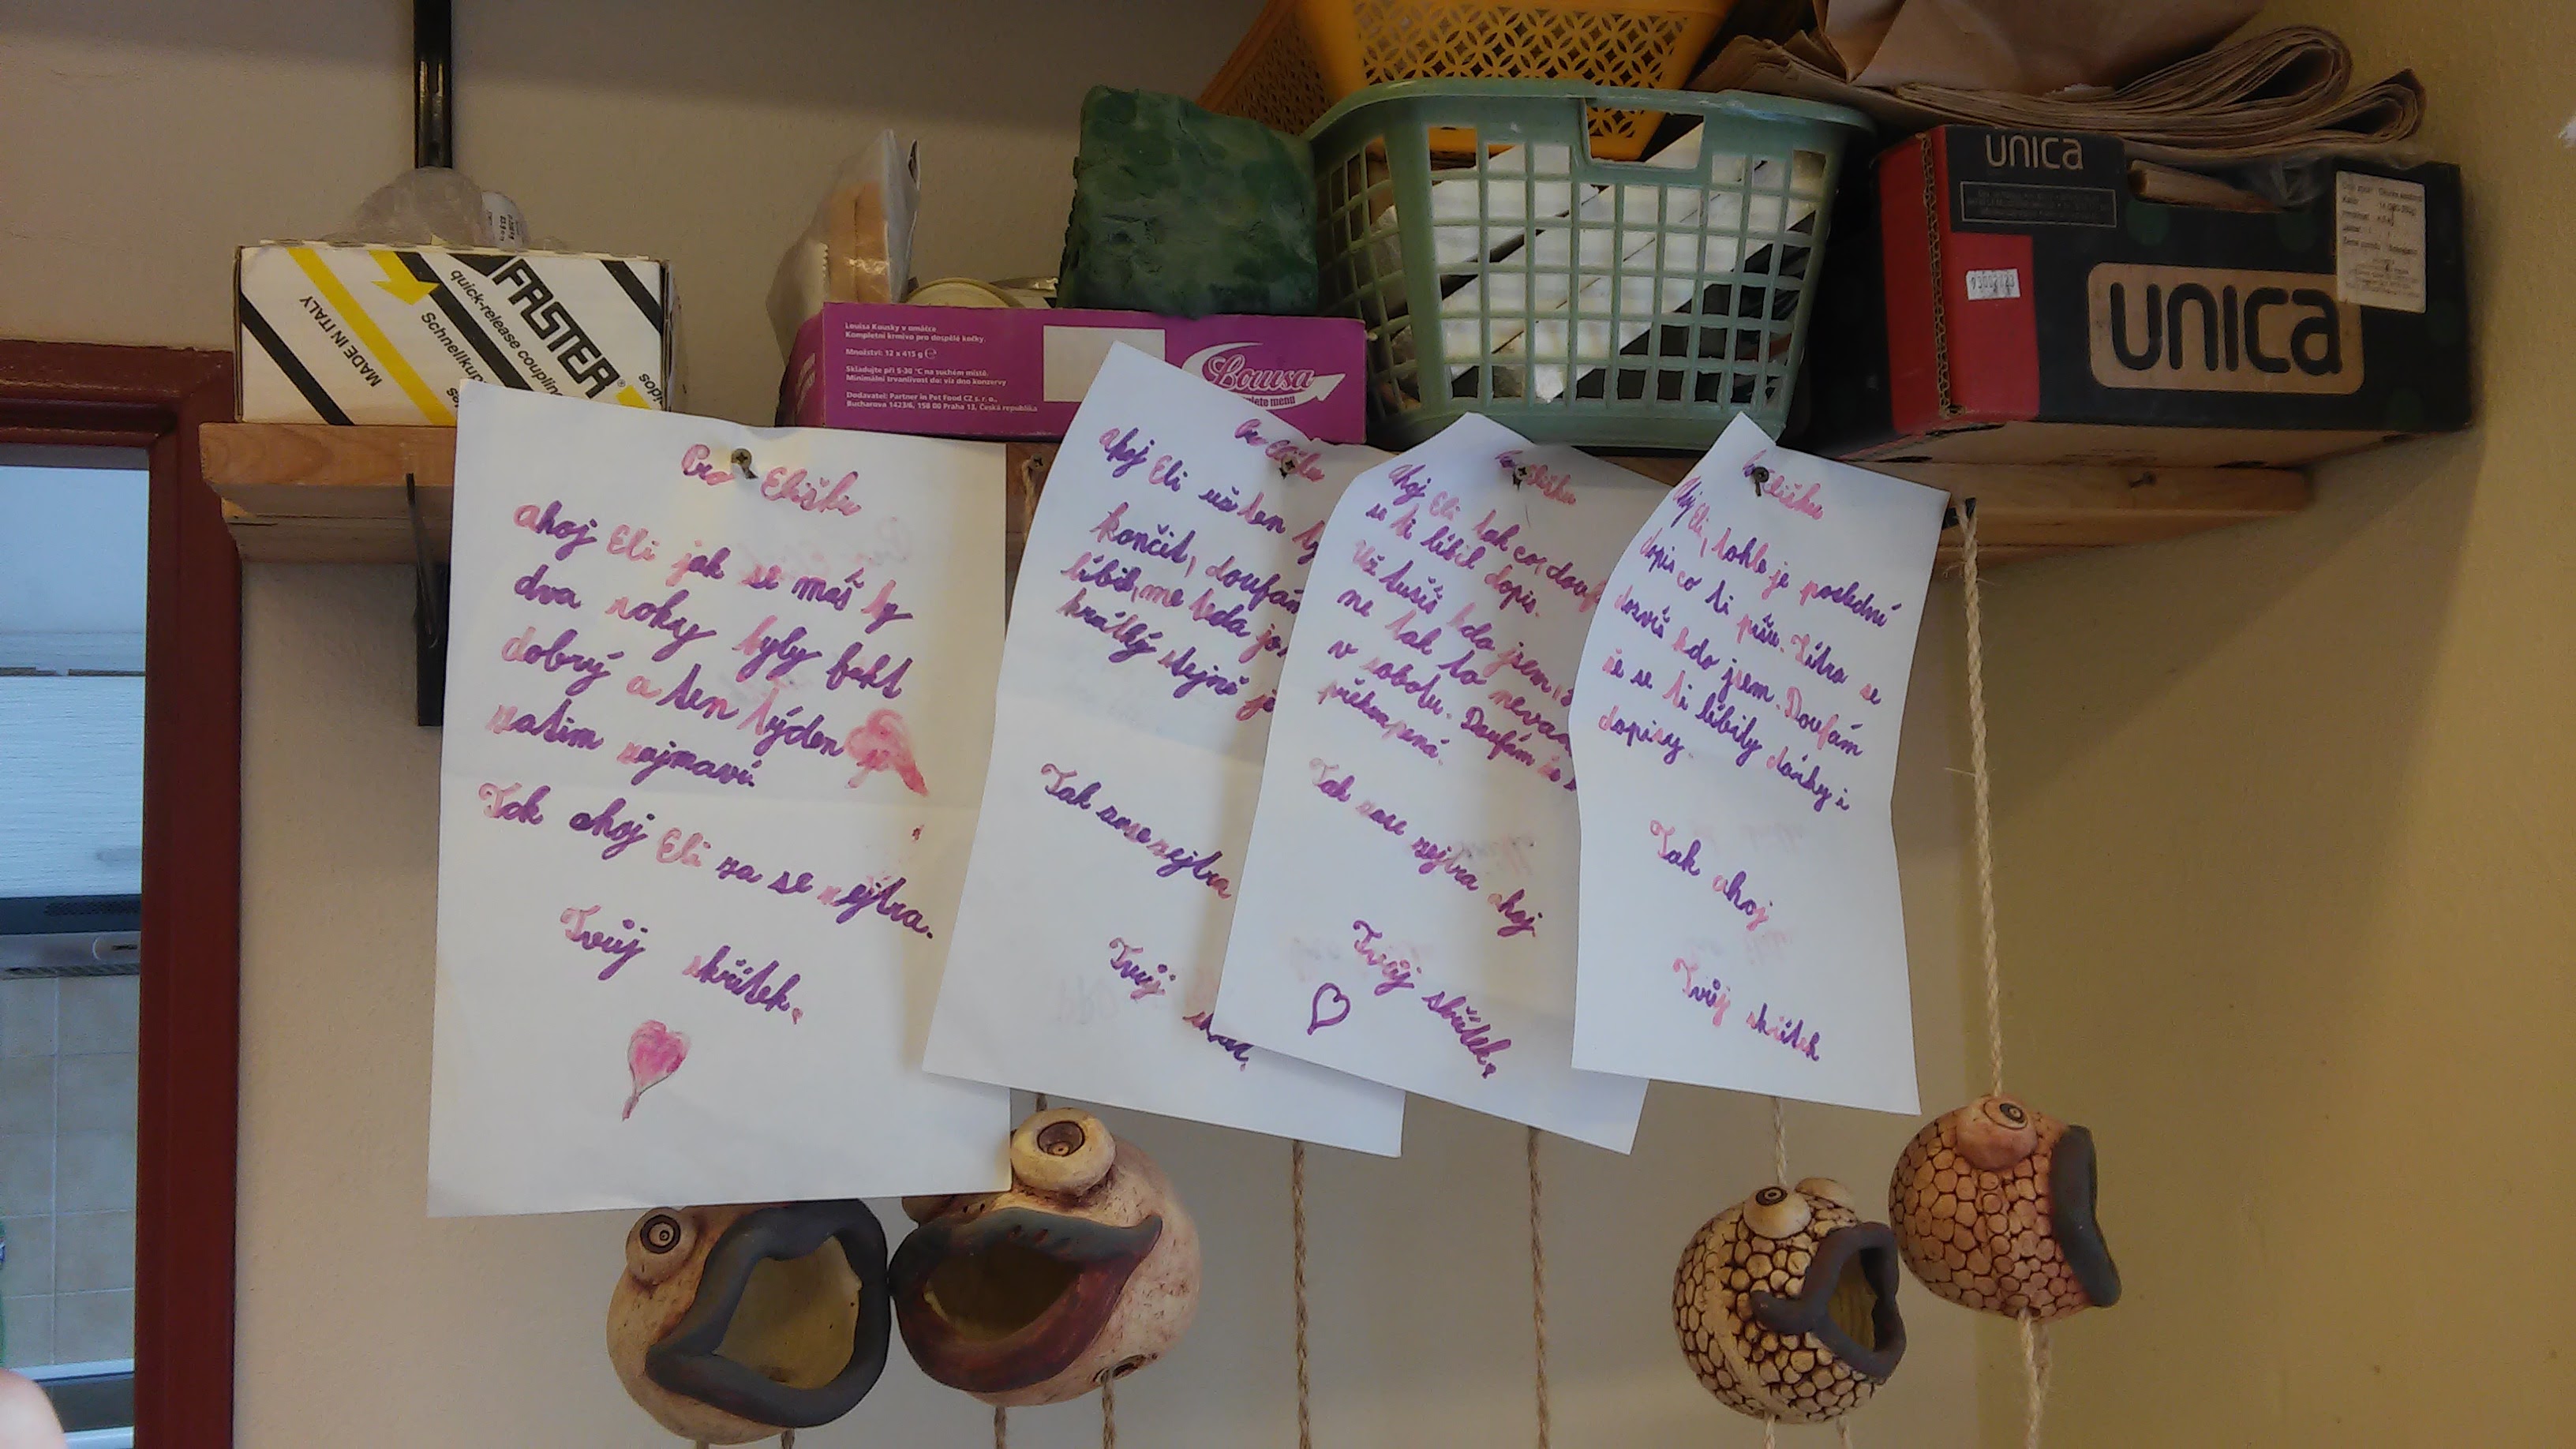 FASTER
quick-release couplin
MADE IN ITALY
Louisa Kousky v omáčce
Kompletní krmivo pro dospělé kočky.
Množství: 12 x 415 g
Skladujte při 5-30 °C na suchém místě.
Minimální trvanlivost do: viz dno konzervy
Dodavatel: Partner in Pet Food CZ s. r. o.,
Bucharova 1423/6, 158 00 Praha 13, Česká republika
Louisa
menu
unica
unica
Pro Elišku
ahoj Eli jak se máš ty
dva roky byly fakt
dobrý a ten týden je
zatim zajmaví.
Tak ahoj Eli za se zejtra.
Tvůj skřítek.
ahoj Eli už ten
končit, doufám
krátký stejně
Tak zase zejtra
Tvůj
Ahoj Eli tak co, douf
se ti líbil dopis.
Už tušíš kdo jsem,
ne tak to neva
v sobotu. Doufám že
překvapená.
Tak zase zejtra ahoj
Tvůj skřítek.
Elišku
Ahoj Eli, tohle je poslední
dopis co ti píšu. Zítra se
dozvíš kdo jsem. Doufám
že se ti líbily dárky i
dopisy.
Tak ahoj
Tvůj skřítek